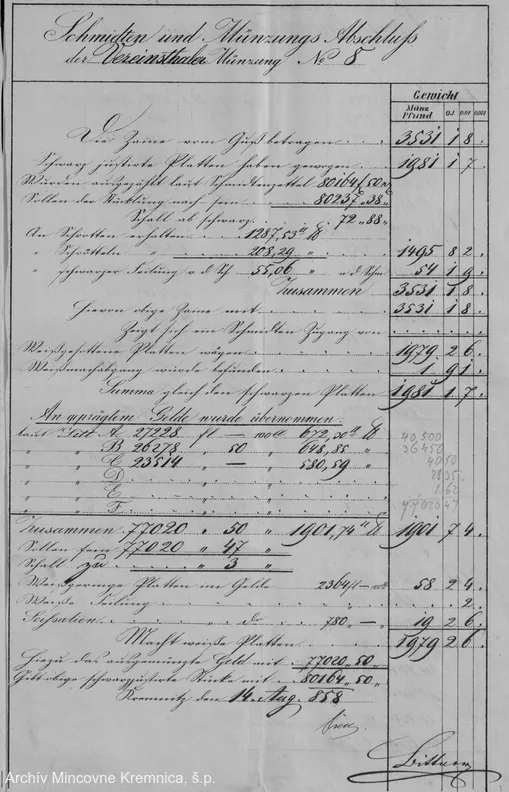 Schmidten und Münzungs Abschluß
der Vereinsthaler Münzung No 8
Gewicht
Münz Pfund 0.1 0.01 0.001
Die Zaine vom Guß betragen 3531 1 8
Schwarz justirte Platten haben gewogen 1981 1 7
Wurden ausgezählt laut Schmidtenzettel 80164 f 50
Sollen der Stücklung nach sein 80237 " 38 "
Schall ab schwarz 72 " 88 "
An Schrotten erhalten 1287,53 ℔
" Schrötteln " 208,29 " 1495 8 2
" schwarzer Feilung 55,06 " 54 1 9
Zusammen 3531 1 8
Hievon obige Zaine mit 3531 1 8
Zeigt sich ein Schmidten Zugang von
Weißgesottene Platten wägen 1979 2 6
Weißmachabgang wurde befunden 1 9 1
Summa gleich den schwarzen Platten 1981 1 7
An geprägtem Gelde wurde übernommen:
laut Litt A 27228 fl — 672,30 ℔
" " B 26278 " 50 " 648,85 "
" " C 23514 — 580,59 "
" " D
" " E
" " F
40,500
36450
4050
2835
1.62
77023 47
Zusammen 77020 " 50 " 1901,74 ℔ 1901 7 4
Sollen sein 77020 " 47 "
Schall zu 3 "
Weißgeringe Platten im Gelde 2364 fl — 58 2 4
Weiße Feilung 2
Scissalien dto 780 " — " 19 2 6
Macht weiße Platten 1979 2 6
Hiezu das ausgemünzte Geld mit 77020 " 50 "
Gibt obige schwarzjustirte Stücke mit 80164 " 50 "
Kremnitz den 14. Aug. 858
Bittner
Archív Mincovne Kremnica, š.p.